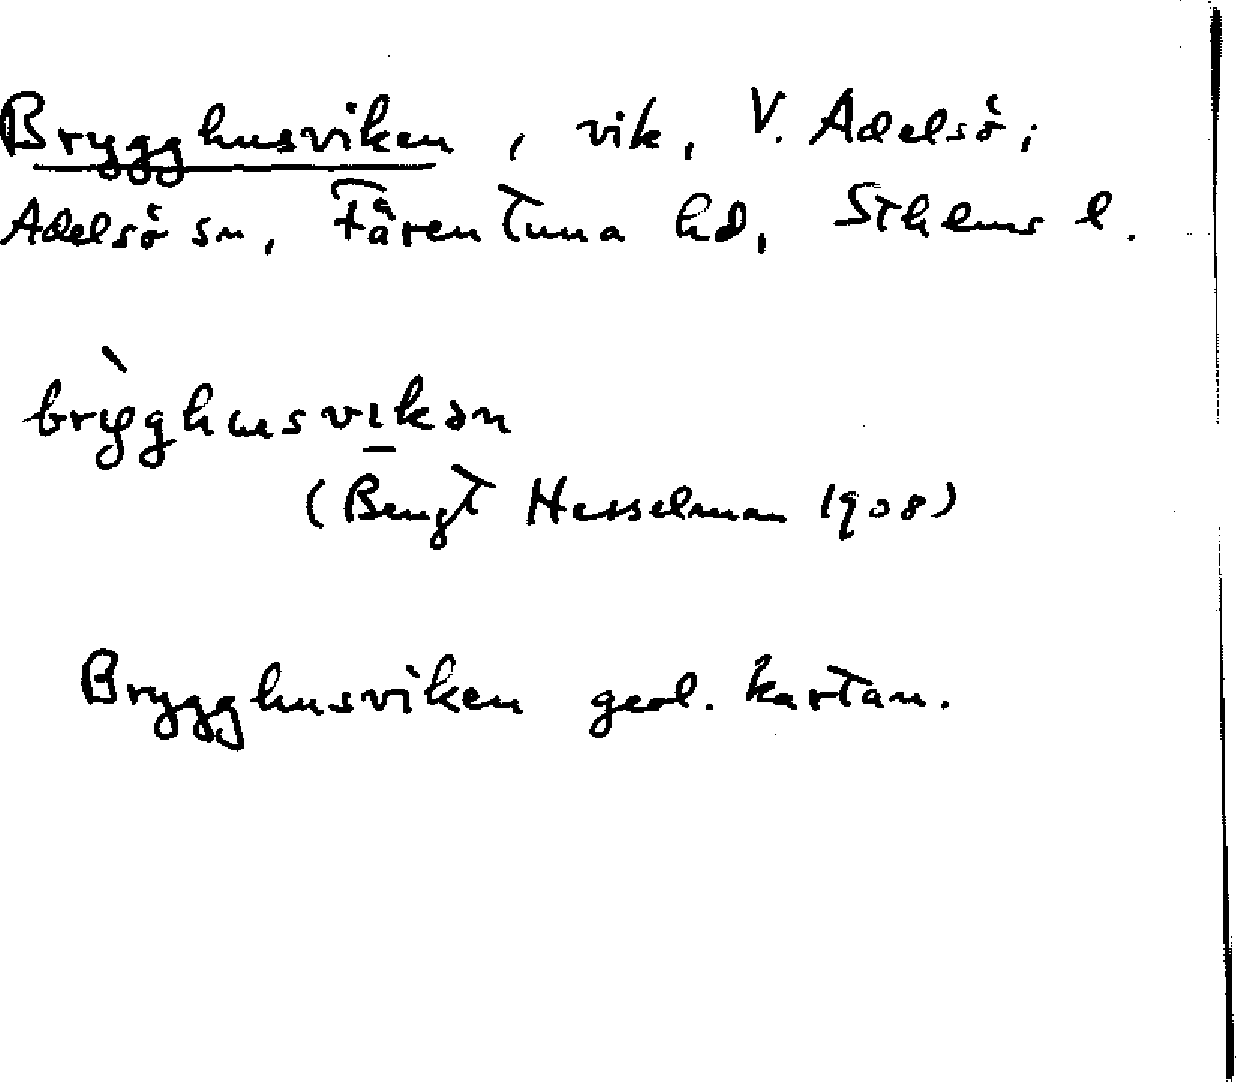 Brygghusviken, vik, V. Adelsö,
Adelsö sn, Färentuna hd, Sthlms l.
brỳghusvikən
(Bengt Hesselman 1908)
Brygghusviken geol. kartan.